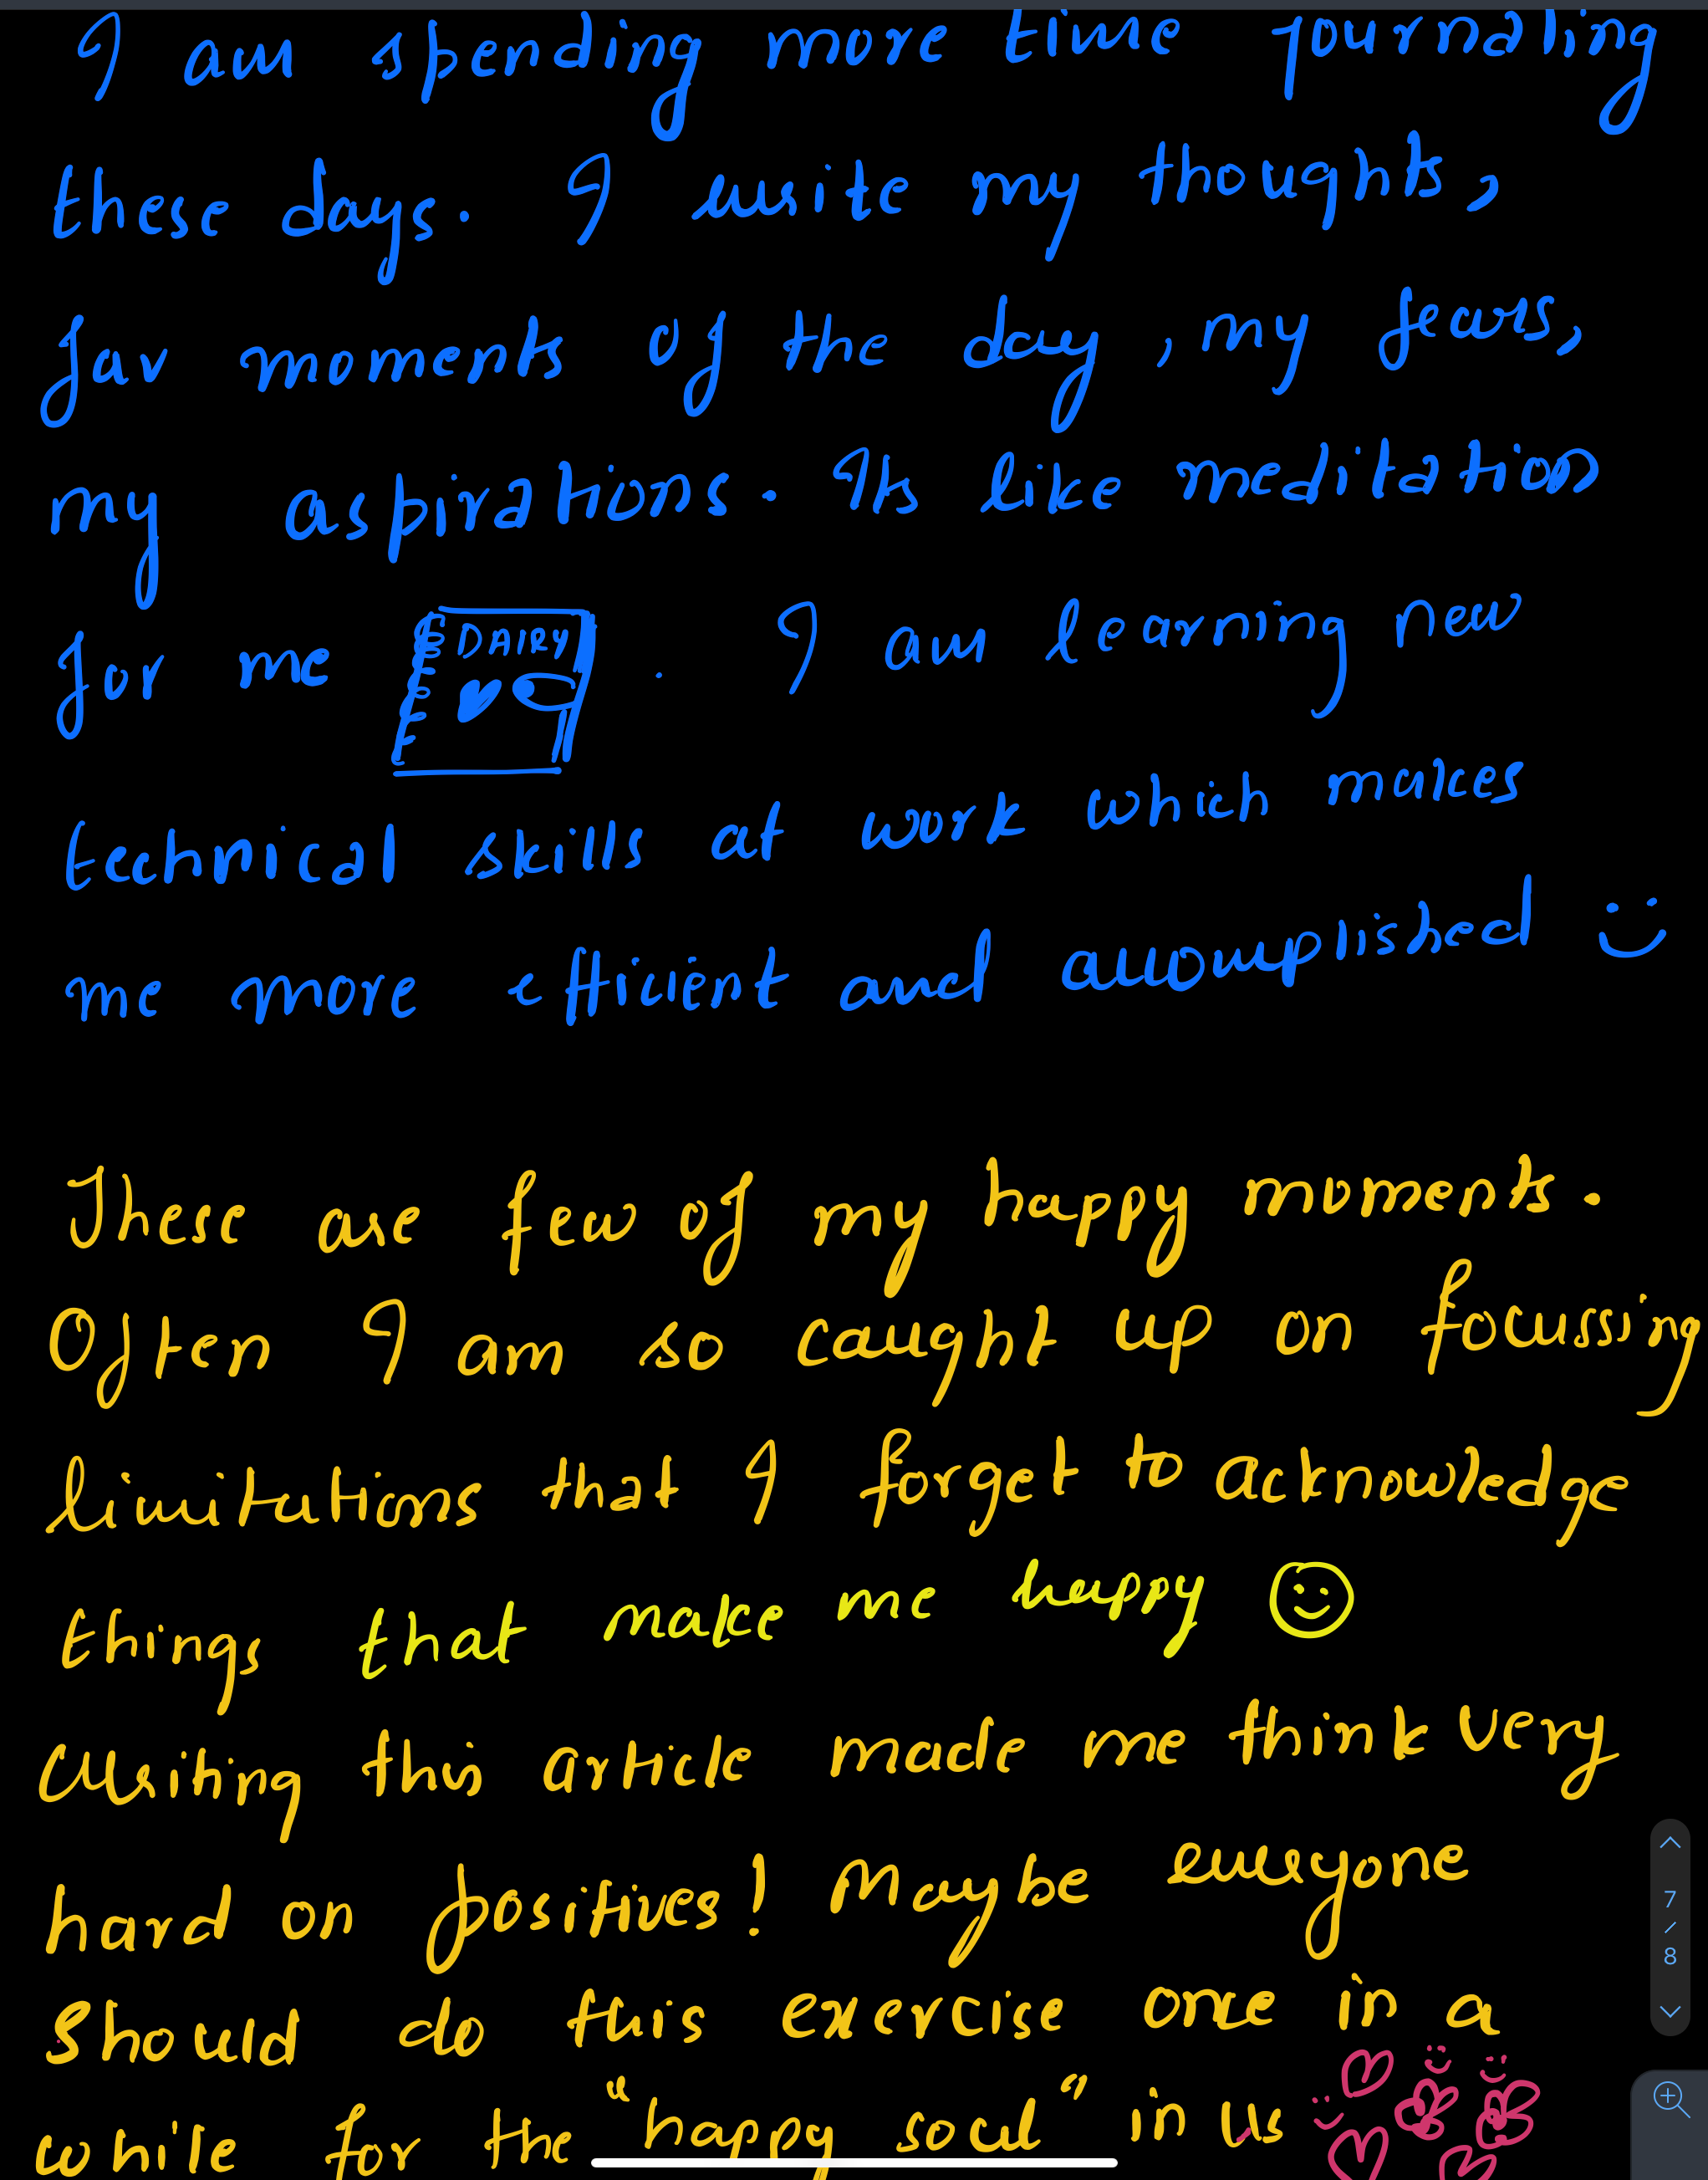 I am spending more time journaling
these days. I write my thoughts,
fav moments of the day, my fears,
my aspirations. Its like meditation
for me DAIRY . I am learning new
technical skills at work which makes
me more efficient and accomplished
These are few of my happy moments.
Often I am so caught up on focussing
limitations that I forget to acknowledge
things that make me happy
Writing this article made me think very
hard on positives! Maybe everyone
should do this exercise once in a
while for the "happy soul" in us
7
/
8